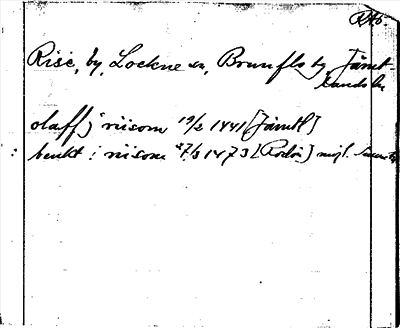 RAÖ.
Rise, by, Lockne sn, Brunflo tg, Jämt-
lands län
olaff j riisom 19/2 1441 [Jämtl]
benkt i riisom 27/3 1473 [Rödön] mojl.